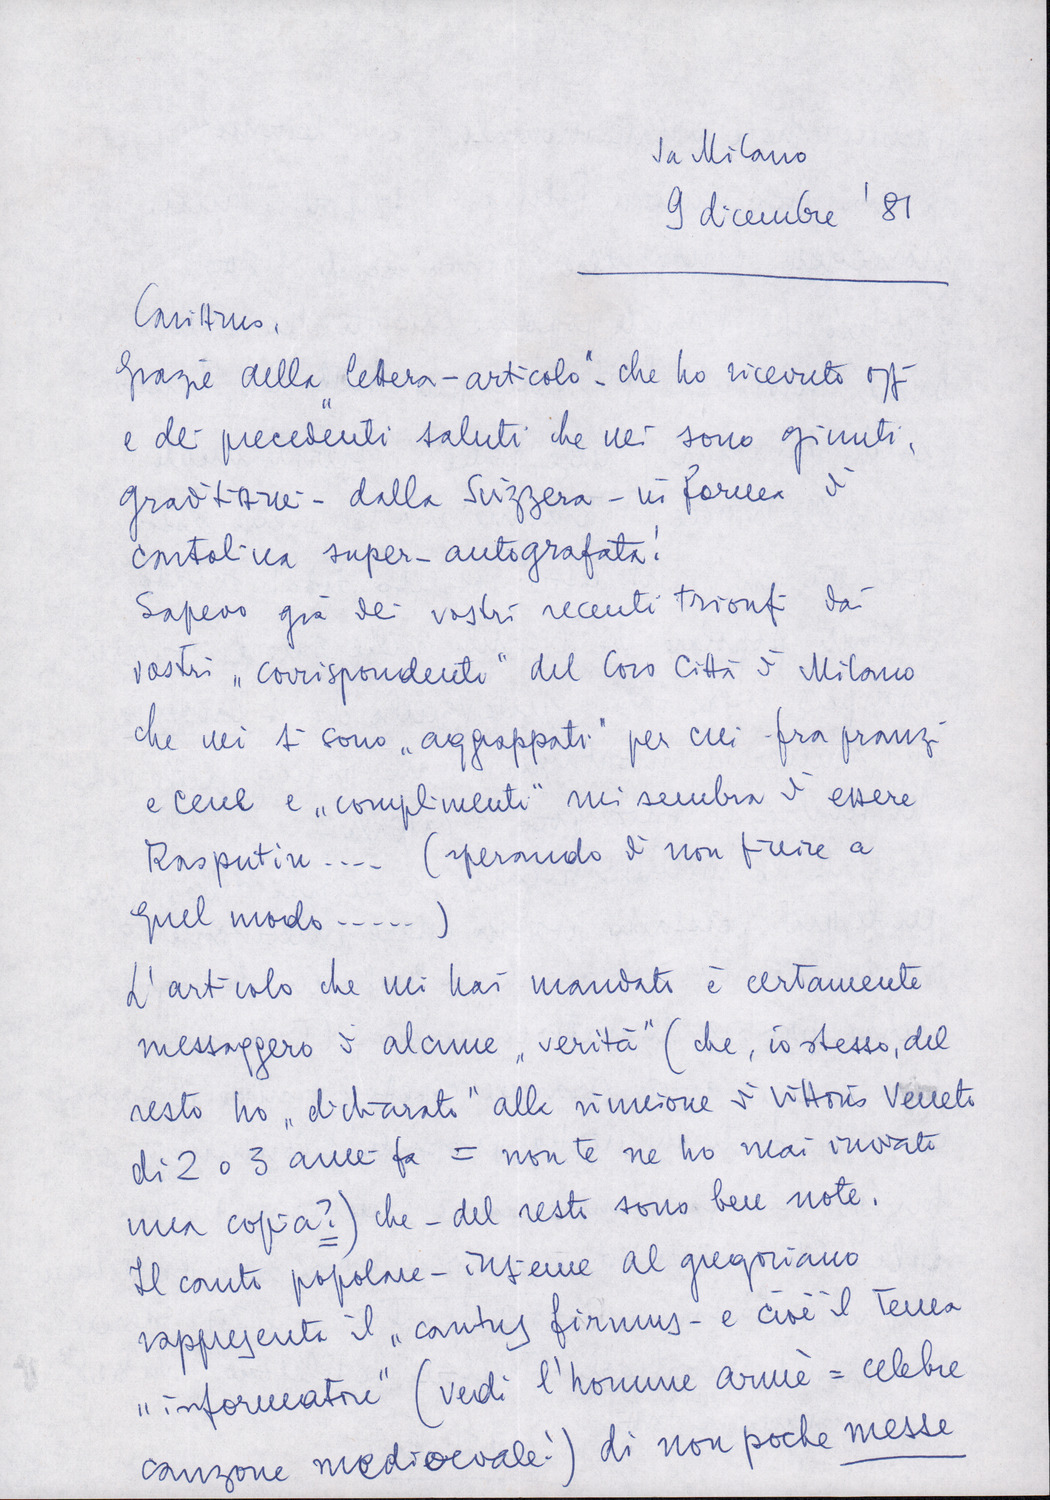 da Milano
9 dicembre '81
Carissimo,
grazie della „lettera-articolo“ - che ho ricevuto oggi
e dei precedenti saluti che mi sono giunti,
graditissimi - dalla Svizzera - in forma di
cartolina super-autografata!
Sapevo già dei vostri recenti trionfi dai
vostri „corrispondenti“ del Coro Città di Milano
che mi si sono „aggrappati“ per cui fra pranzi
e cene e „complimenti“ mi sembra di essere
Rasputin .... (sperando di non finire a
quel modo .....)
L'articolo che mi hai mandato è certamente
messaggero di alcune „verità“ (che, io stesso, del
resto ho „dichiarato“ alla riunione di Vittorio Veneto
di 2 o 3 anni fa = non te ne ho mai inviato
una copia?) che - del resto sono bene note.
Il canto popolare - insieme al gregoriano
rappresenta il „cantus firmus - e cioè il tema
„informatore“ (vedi l'homme armè = celebre
canzone medioevale!) di non poche messe